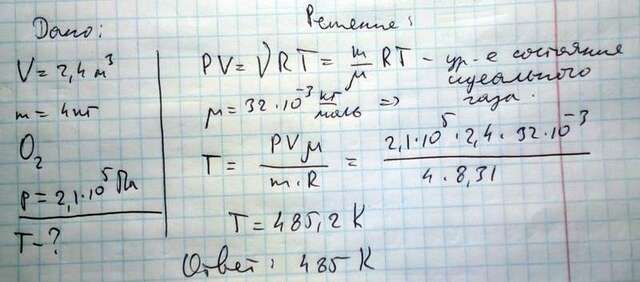 Дано:
V = 2,4 м³
m = 4 кг
O₂
p = 2,1·10⁵ Па
T - ?
Решение:
PV = νRT = m/μ RT - ур-е состояния
идеального
газа.
μ = 32·10⁻³ кг/моль =>
T = PVμ / m·R = 2,1·10⁵·2,4·32·10⁻³ / 4·8,31
T = 485,2 K
Ответ: 485 K